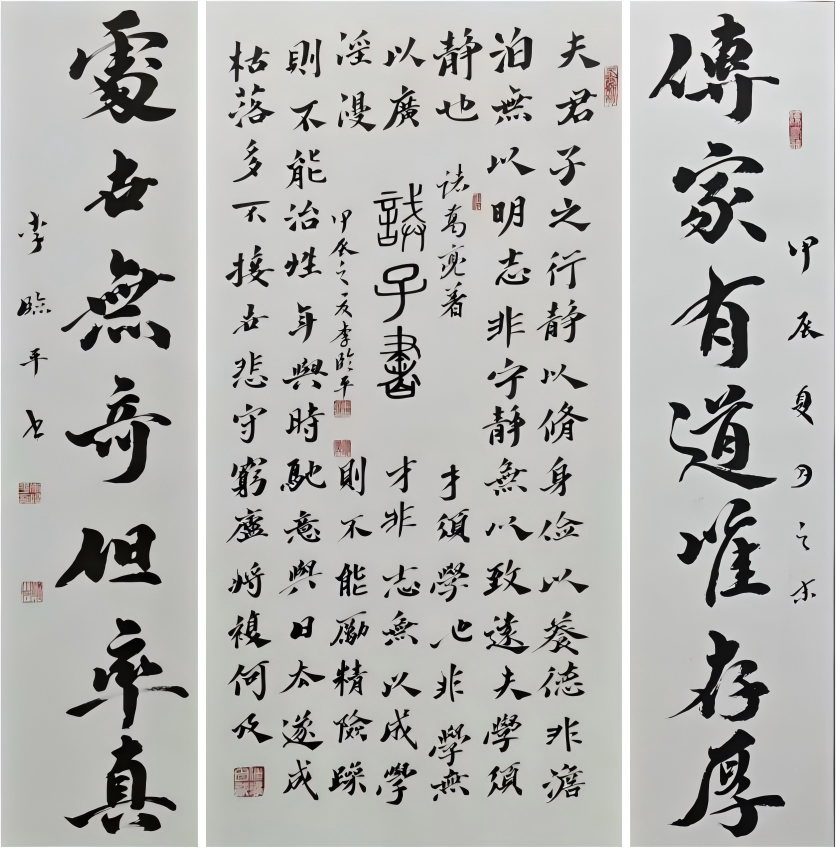 傳家有道唯存厚
甲辰夏月之
夫君子之行静以脩身儉以養德非澹
泊無以明志非宁静無以致遠夫學須
静也
才須學也非學無
以廣
才非志無以成學
淫漫
則不能勵精險躁
則不能治性年與時馳意與日去遂成
枯落多不接世悲守窮廬將複何及
诸葛亮着
誡子書
甲辰之夏李臨平
處世無奇但率真
李臨平书